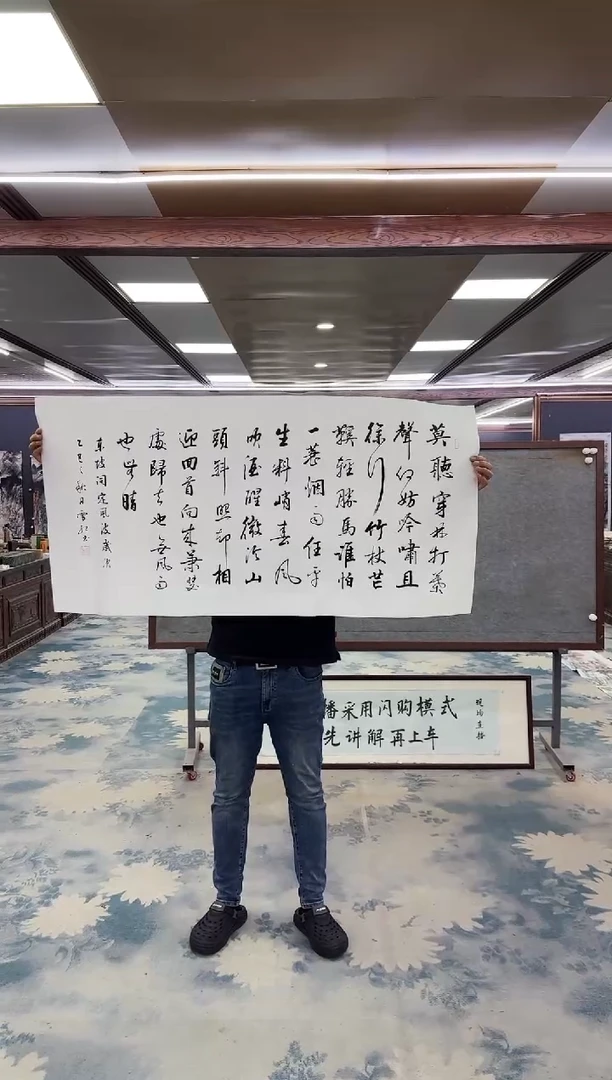 莫聽穿林打葉
聲何妨吟嘯且
徐行竹杖芒
鞵輕勝馬誰怕
一蓑烟雨任平
生料峭春風
吹酒醒微冷山
頭斜照却相
迎回首向來蕭瑟
處歸去也無風雨
也無晴
東坡詞定風波
乙巳之秋月
播采用闪购模式
先讲解再上车
现场直播